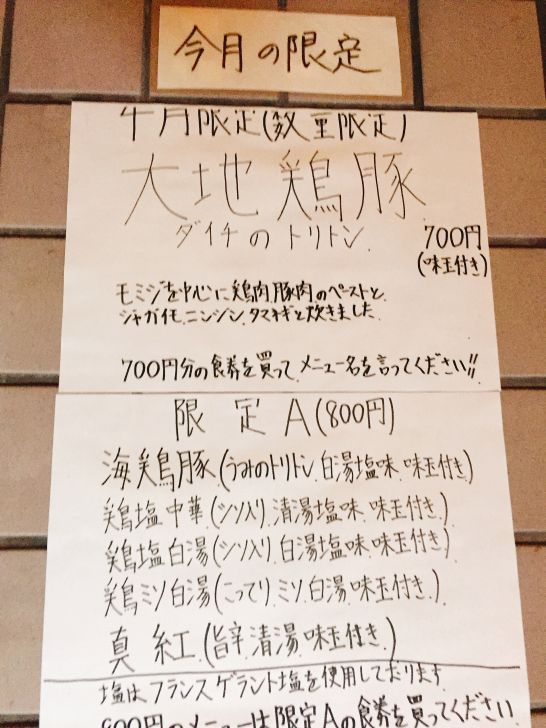 今月の限定
4月限定(数量限定)
大地鶏豚
ダイチのトリトン
700円
(味玉付き)
モミジを中心に鶏肉、豚肉のペーストと
ジャガイモ、ニンジン、タマネギと炊きました
700円分の食券を買って、メニュー名を言ってください!!
限定A(800円)
海鶏豚(うみのトリトン、白湯塩味、味玉付き)
鶏塩中華(シソ入り、清湯塩味、味玉付き)
鶏塩白湯(シソ入り、白湯塩味、味玉付き)
鶏ミソ白湯(こってり、ミソ、白湯味玉付き)
真紅(旨辛、清湯、味玉付き)
塩はフランスゲラント塩を使用しております
800円のメニューは限定Aの食券を買ってください